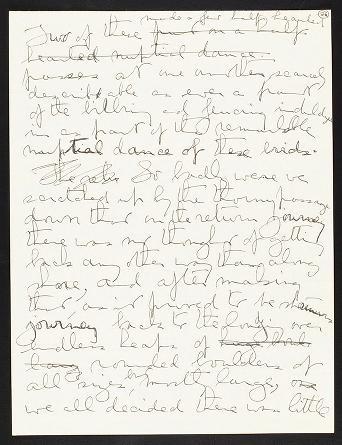 made a few half hearted
Two of these put on a half
hearted nuptial dance.
passes at one another, scarcely
describable as even a feint
of the billing and fencing indulged
in as part of the remarkable
nuptial dance of these birds.
So badly were we
scratched up by the thorny passage
down that on the return journey
there was no thought of getting
back any other way than along
shore, and after making
this, as it proved to be strenuous
journey back to the landing over
endless heaps of
rounded boulders of
all sizes, mostly large,
we all decided there was little